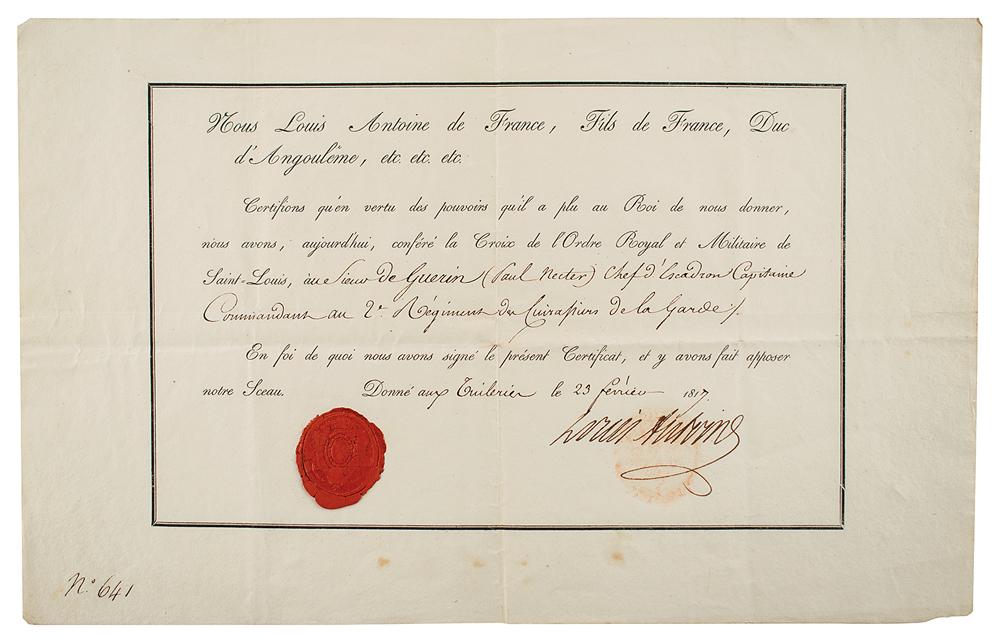 Nous Louis Antoine de France, Fils de France, Duc
d'Angoulême, etc. etc. etc.
Certifions qu'en vertu des pouvoirs qu'il a plu au Roi de nous donner,
nous avons, aujourd'hui, conféré la Croix de l'Ordre Royal et Militaire de
Saint-Louis, au Sieur de Guerin (Paul Necter) Chef d'Escadron Capitaine
Commandant au 2e Régiment des Cuirassiers de la Garde /.
En foi de quoi nous avons signé le présent Certificat, et y avons fait apposer
notre Sceau. Donné aux Tuileries le 23 février 1817.
Louis Antoine
N.° 641